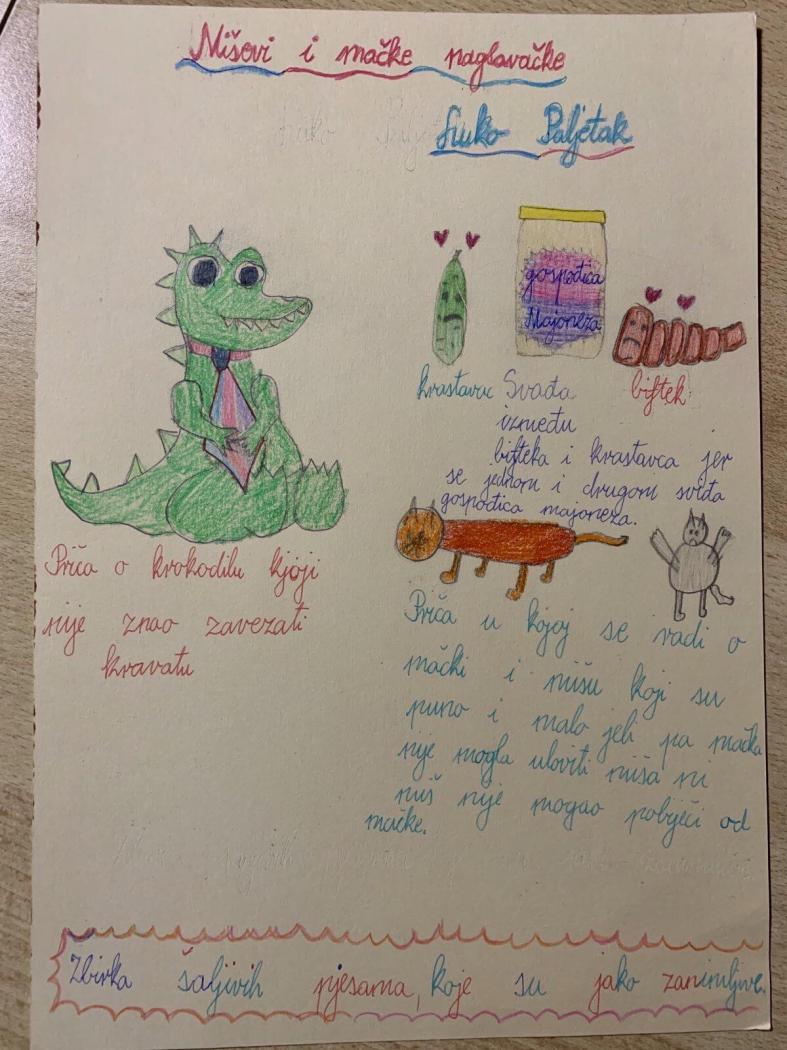 Miševi i mačke naglavačke
Luko Paljetak
gospođica
Majoneza
krastavac
biftek
Svađa
između
bifteka i krastavca jer
se jednom i drugom sviđa
gospođica majoneza.
Priča o krokodilu kjoji
nije znao zavezati
kravatu
Priča u kojoj se radi o
mački i mišu koji su
puno i malo jeli pa mačka
nije mogla uloviti miša ni
miš nije mogao pobjeći od
mačke.
Zbirka šaljivih pjesama, koje su jako zanimljive.